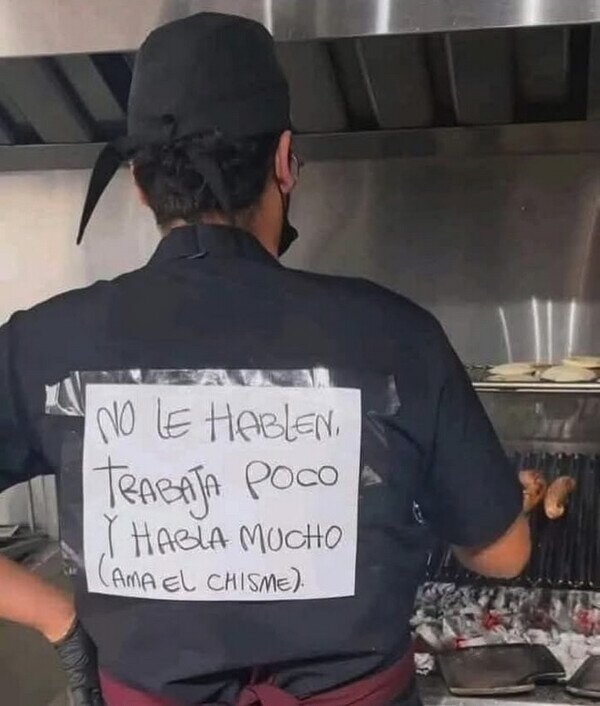 NO LE HABLEN.
TRABAJA POCO
Y HABLA MUCHO
(AMA EL CHISME).